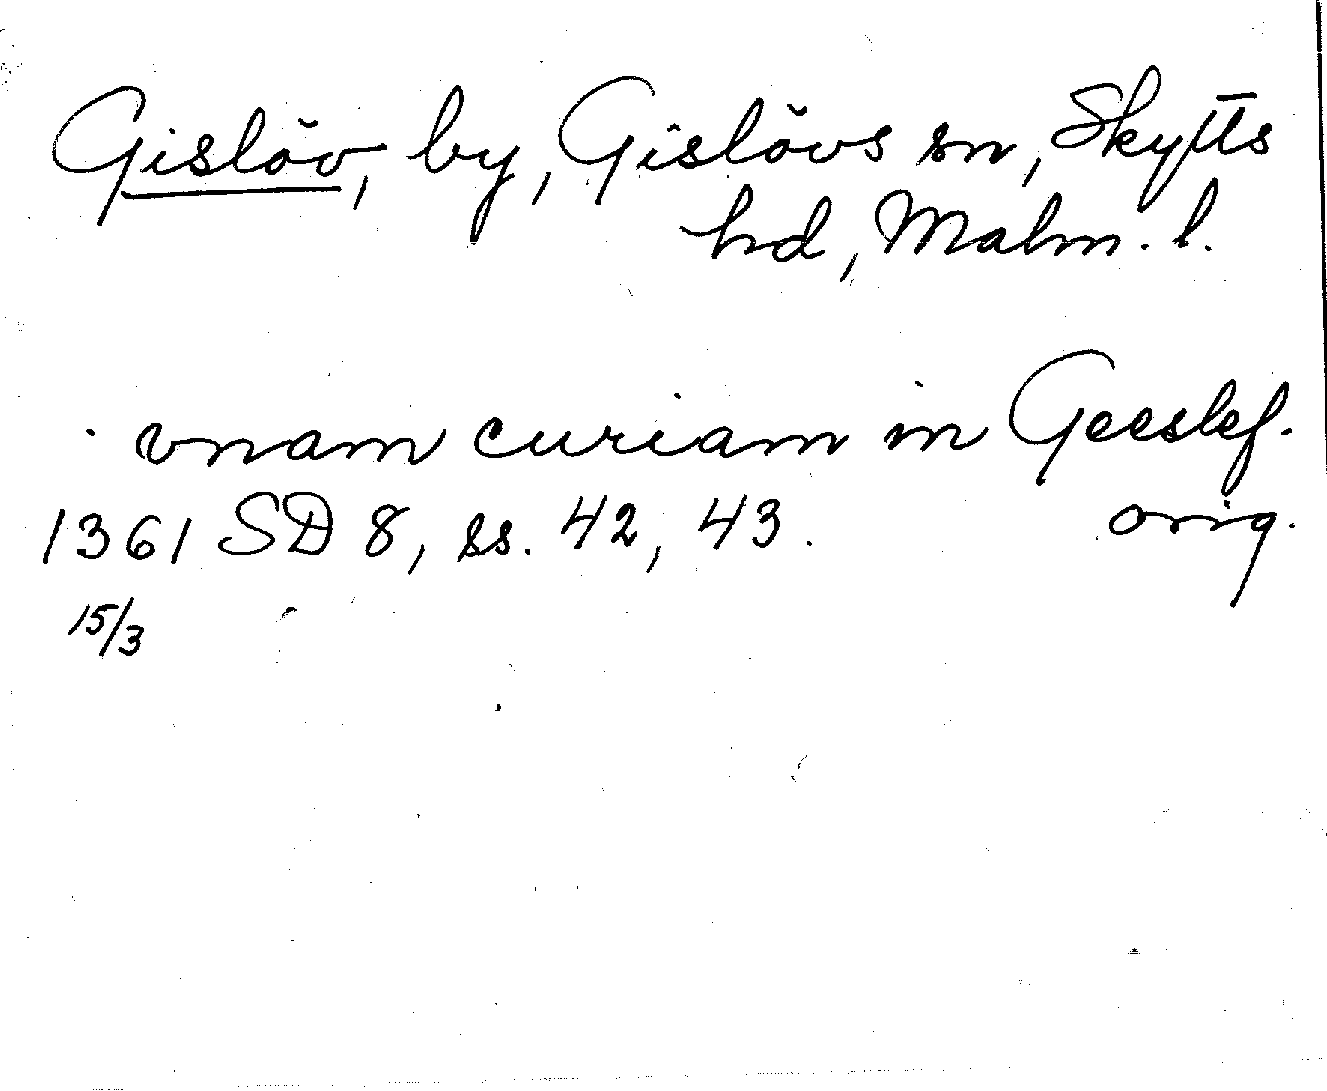 Gislöv, by, Gislövs sn, Skytts
hd, Malm. l.
vnam curiam in Geeslef.
1361 SD 8, ss. 42, 43. orig.
15/3